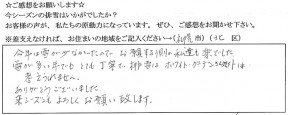 ☆ご感想をお願いします☆
今シーズンの排雪はいかがでしたか?
お客様の声が、私たちの原動力になっています。ぜひ、ご感想をお聞かせ下さい。
※差支えなければ、お住まいの地域をご記入ください→( 市)( 区)
今年は雪が少なかったので お願いする側の私達も楽でした。
雪が多い年でも とても丁寧で 排雪は ホワイトガーデンさん以外は
考えられません。
ありがとうございました
来シーズンもよろしくお願い致します。